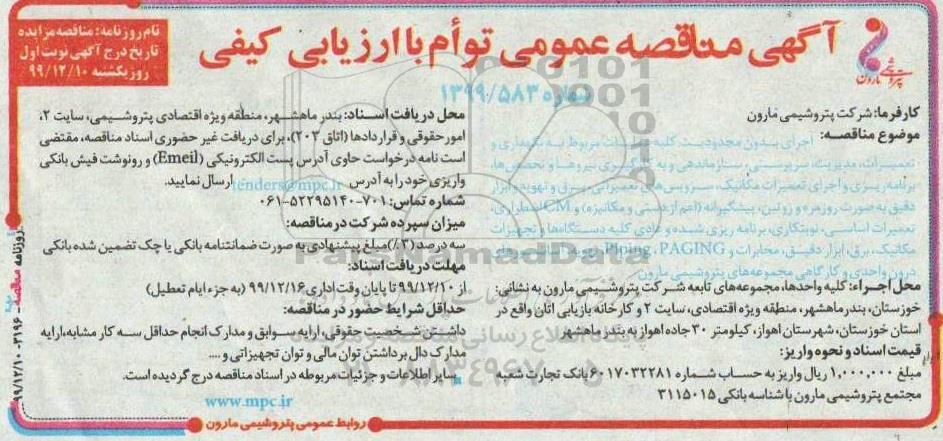 نام روزنامه: مناقصه مزایده
تاریخ درج آگهی نوبت اول
روز یکشنبه ۹۹/۱۲/۱۰
آگهی مناقصه عمومی توأم با ارزیابی کیفی
شماره ۱۳۹۹/۵۸۳
پتروشیمی مارون
کارفرما: شرکت پتروشیمی مارون
موضوع مناقصه: اجرای بدون محدودیت کلیه خدمات مربوط به نگهداری و
تعمیرات، مدیریت، سرپرستی، سازماندهی و به کارگیری نیروها و تخصص‌ها،
برنامه ریزی و اجرای تعمیرات مکانیک، سرویس‌های تعمیراتی، برق و تهویه و ابزار
دقیق به صورت روزمره و روتین، پیشگیرانه (اعم از دستی و مکانیزه) و CM اضطراری،
تعمیرات اساسی، نوبتکاری، برنامه ریزی شده و عادی کلیه دستگاه‌ها و تجهیزات
مکانیک، برق، ابزار دقیق، مخابرات و Piping ، PAGING
درون واحدی و کارگاهی مجموعه‌های پتروشیمی مارون
محل اجراء: کلیه واحدها، مجموعه‌های تابعه شرکت پتروشیمی مارون به نشانی:
خوزستان، بندرماهشهر، منطقه ویژه اقتصادی، سایت ۲ و کارخانه بازیابی اتان واقع در
استان خوزستان، شهرستان اهواز، کیلومتر ۳۰ جاده اهواز به بندر ماهشهر
قیمت اسناد و نحوه واریز:
مبلغ ۱,۰۰۰,۰۰۰ ریال واریز به حساب شماره ۶۰۱۷۰۳۲۲۸۱ بانک تجارت شعبه
مجتمع پتروشیمی مارون با شناسه بانکی ۳۱۱۵۰۱۵
محل دریافت اسناد: بندر ماهشهر، منطقه ویژه اقتصادی پتروشیمی، سایت ۲،
امور حقوقی و قراردادها (اتاق ۲۰۳)، برای دریافت غیر حضوری اسناد مناقصه، مقتضی
است نامه درخواست حاوی آدرس پست الکترونیکی (Emeil) و رونوشت فیش بانکی
واریزی خود را به آدرس tenders@mpc.ir ارسال نمایید.
شماره تماس: ۷۰۱-۵۲۲۹۵۱۴۰-۰۶۱
میزان سپرده شرکت در مناقصه:
سه درصد (۳٪) مبلغ پیشنهادی به صورت ضمانتنامه بانکی یا چک تضمین شده بانکی
مهلت دریافت اسناد:
از ۹۹/۱۲/۱۰ تا پایان وقت اداری ۹۹/۱۲/۱۶ (به جزء ایام تعطیل)
حداقل شرایط حضور در مناقصه:
داشتن شخصیت حقوقی، ارایه سوابق و مدارک انجام حداقل سه کار مشابه، ارایه
مدارک دال بر داشتن توان مالی و توان تجهیزاتی و ....
سایر اطلاعات و جزئیات مربوطه در اسناد مناقصه درج گردیده است.
www.mpc.ir
روابط عمومی پتروشیمی مارون
روزنامه مناقصه - ۳۱۹۶ - ۹۹/۱۲/۱۰
ParsNamadData